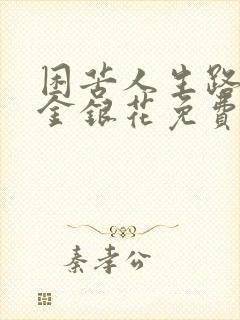 困苦人生路
金银花免费
秦孝公